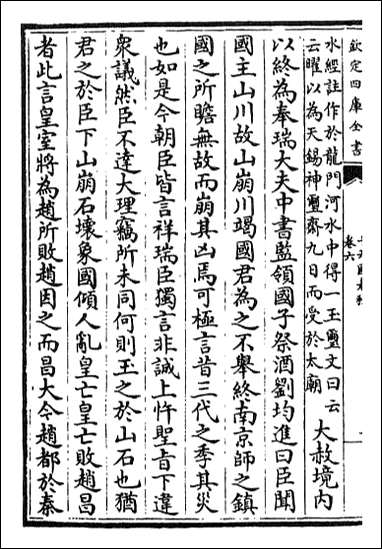 欽定四庫全書
卷六
水經註作於龍門河水中得一玉璽文曰云
云曜以為天錫神璽齋九日而受於太廟
大赦境内
以終為奉瑞大夫中書監領國子祭酒劉均進曰臣聞
國主山川故山崩川竭國君為之不舉終南京師之鎮
國之所瞻無故而崩其凶焉可極言昔三代之季其災
也如是今朝臣皆言祥瑞臣獨言非誠上忤聖旨下違
衆議然臣不達大理竊所未同何則玉之於山石也猶
君之於臣下山崩石壞象國傾人亂皇亡皇亡敗趙昌
者此言皇室將為趙所敗趙因之而昌大今趙都於秦